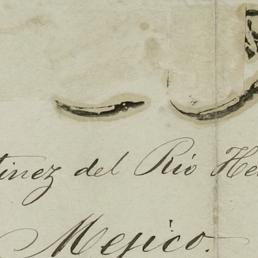 tinez del Rio He
Mejico.